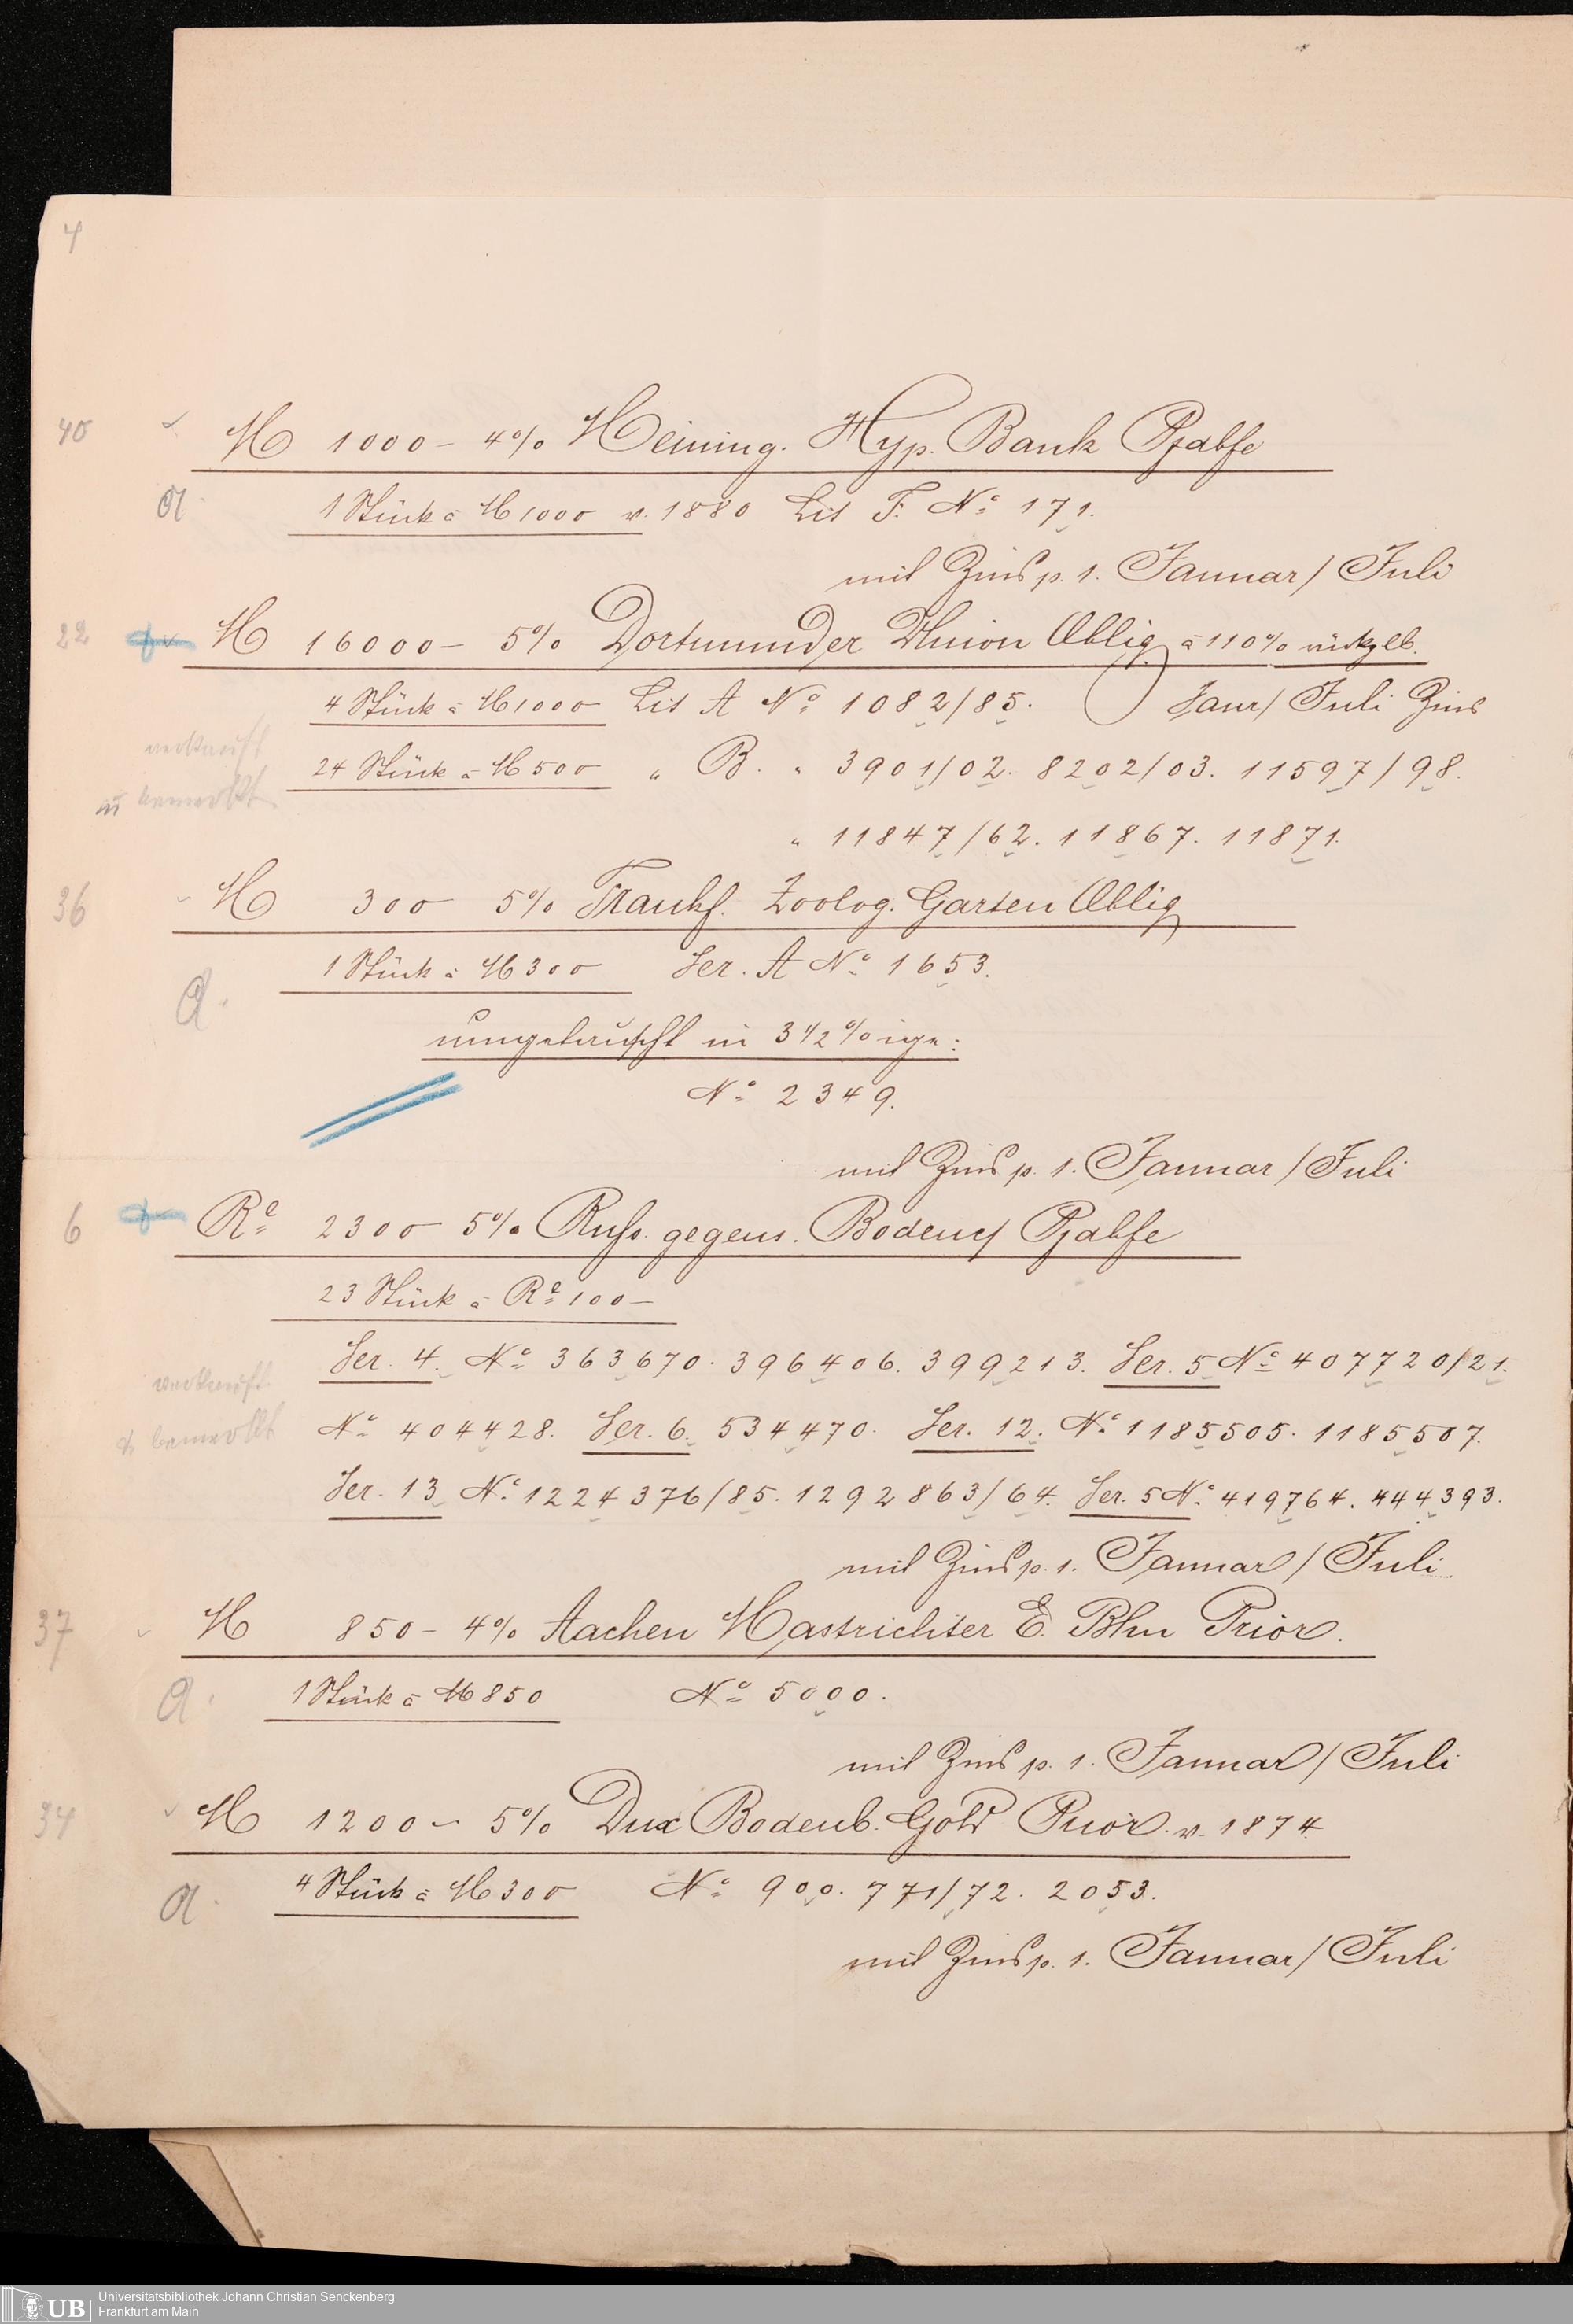 4
40 M 1000 – 4% Meining. Hyp. Bank Pfdbfe
a 1 Stück à M 1000 v. 1880 Lit F. No 171.
mit Zins p. 1. Januar / Juli
22 M 16000 – 5% Dortmunder Union Oblig à 110% rückzlb.
4 Stück à M 1000 Lit A No 1082/85. Janr / Juli Zins
verkauft
24 Stück à M 500 " B. " 3901/02. 8202/03. 11597/98.
bemerkt
" 11847/62. 11867. 11871.
36 M 300 5% Frankf. Zoolog. Garten Oblig
1 Stück à M 300 Ser. A No 1653.
a.
umgetauscht in 3 1/2 %ige:
No 2349.
mit Zins p. 1. Januar / Juli
6 Ro 2300 5% Russ. gegens. Bodencr Pfdbfe
23 Stück à Ro 100 –
Ser. 4. No 363670. 396406. 399213. Ser. 5 No 407720/21.
verkauft
& bemerkt No 404428. Ser. 6. 534470. Ser. 12. No 1185505. 1185507.
Ser. 13 No 1224376/85. 1292863/64. Ser. 5 No 419764. 444393.
mit Zins p. 1. Januar / Juli
37 M 850 – 4% Aachen Mastrichter E. Bhn Prior.
a. 1 Stück à M 850 No 5000.
mit Zins p. 1. Januar / Juli
34 M 1200 – 5% Dux Bodenb. Gold Prior. v. 1874
a. 4 Stück à M 300 No 900. 771/72. 2053.
mit Zins p. 1. Januar / Juli
UB Universitätsbibliothek Johann Christian Senckenberg
Frankfurt am Main